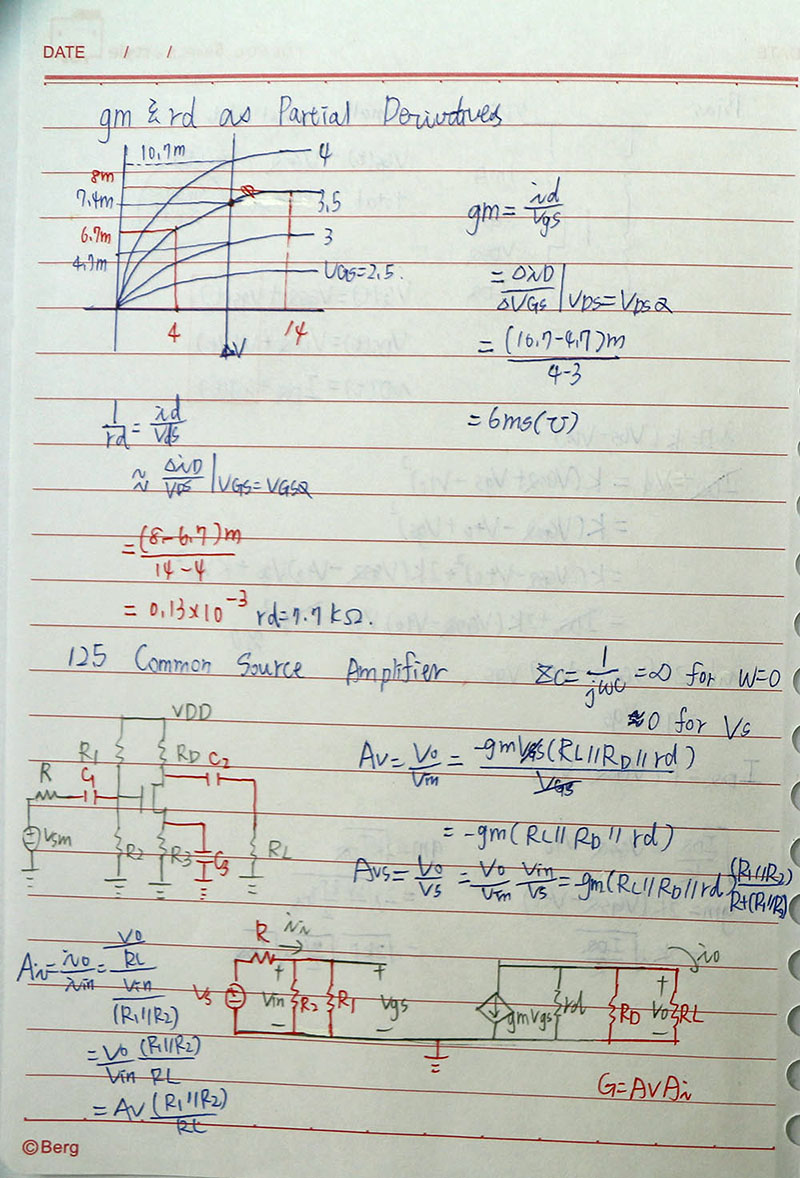 DATE / /
gm & rd as Partial Derivatives
10.7m
4
8m
7.4m
3.5
6.7m
3
4.7m
VGS=2.5.
4
14
ΔV
gm = id/vgs
= ΔiD/ΔVGS | VDS=VDSQ
= (10.7-4.7)m/4-3
= 6ms(℧)
1/rd = id/vds
≈ ΔiD/VDS | VGS=VGSQ
= (8-6.7)m/14-4
= 0.13×10^-3 rd=7.7kΩ.
125 Common Source Amplifier
ZC = 1/jωC = ∞ for W=0
≈0 for Vs
VDD
R1 RD C2
R C1
Vsm
R2 R3 C3 RL
Av = Vo/Vin = -gmVgs(RL//RD//rd)/VGS
= -gm(RL//RD//rd)
Avs = Vo/Vs = Vo/Vin Vin/Vs = -gm(RL//RD//rd) (R1//R2)/R+(R1//R2)
Ai = io/iin = Vo/RL / Vin/(R1//R2)
= Vo/Vin (R1//R2)/RL
= Av (R1//R2)/RL
R iin
io
Vs + Vin - R2 R1 + Vgs -
gmVgs rd RD + Vo - RL
G=AvAi
©Berg